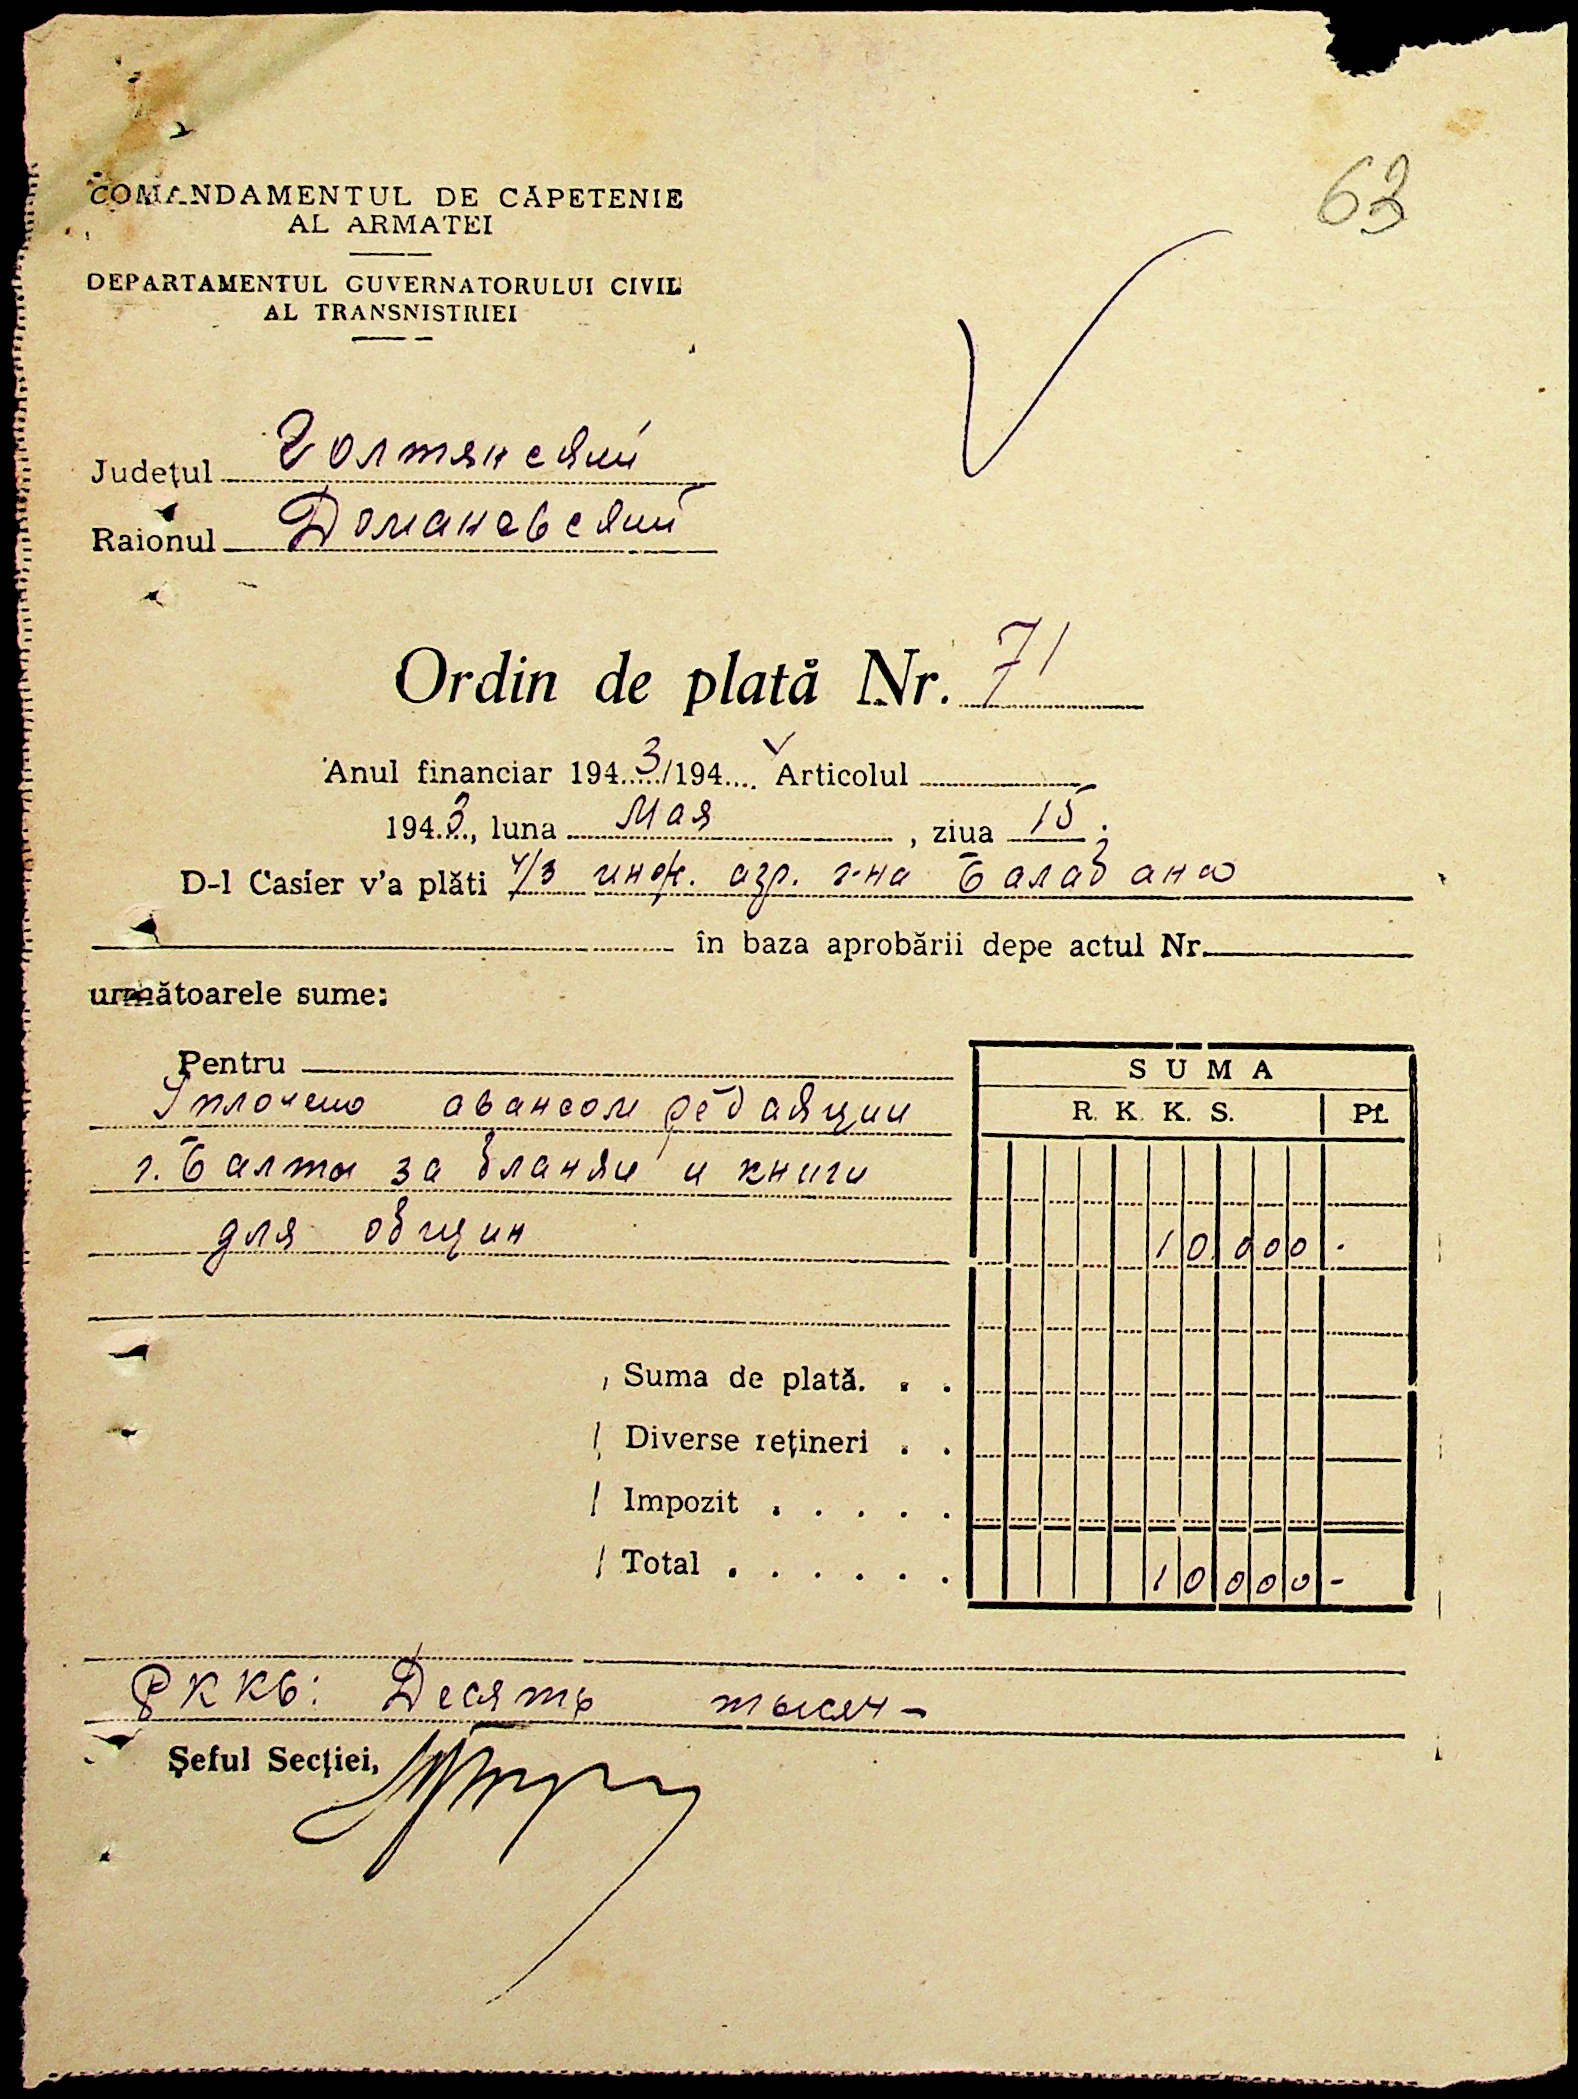 63
COMANDAMENTUL DE CAPETENIE
AL ARMATEI
DEPARTAMENTUL GUVERNATORULUI CIVIL
AL TRANSNISTRIEI
Județul Голтянский
Raionul Доманевский
Ordin de plată Nr. 71
Anul financiar 194 3/194.... Articolul
194 3, luna Мая, ziua 15.
D-l Casier v'a plăti ч/з инж. агр. г-на Балабано
în baza aprobării depe actul Nr.
următoarele sume:
Pentru
Уплочено авансом редакции
г. Балта за бланки и книги
для общин
SUMA
R. K. K. S. Pf.
10.000 -
Suma de plată. . .
Diverse rețineri . .
Impozit . . . . .
Total . . . . . . 10000 -
РККС: Десять тысяч -
Șeful Secției,